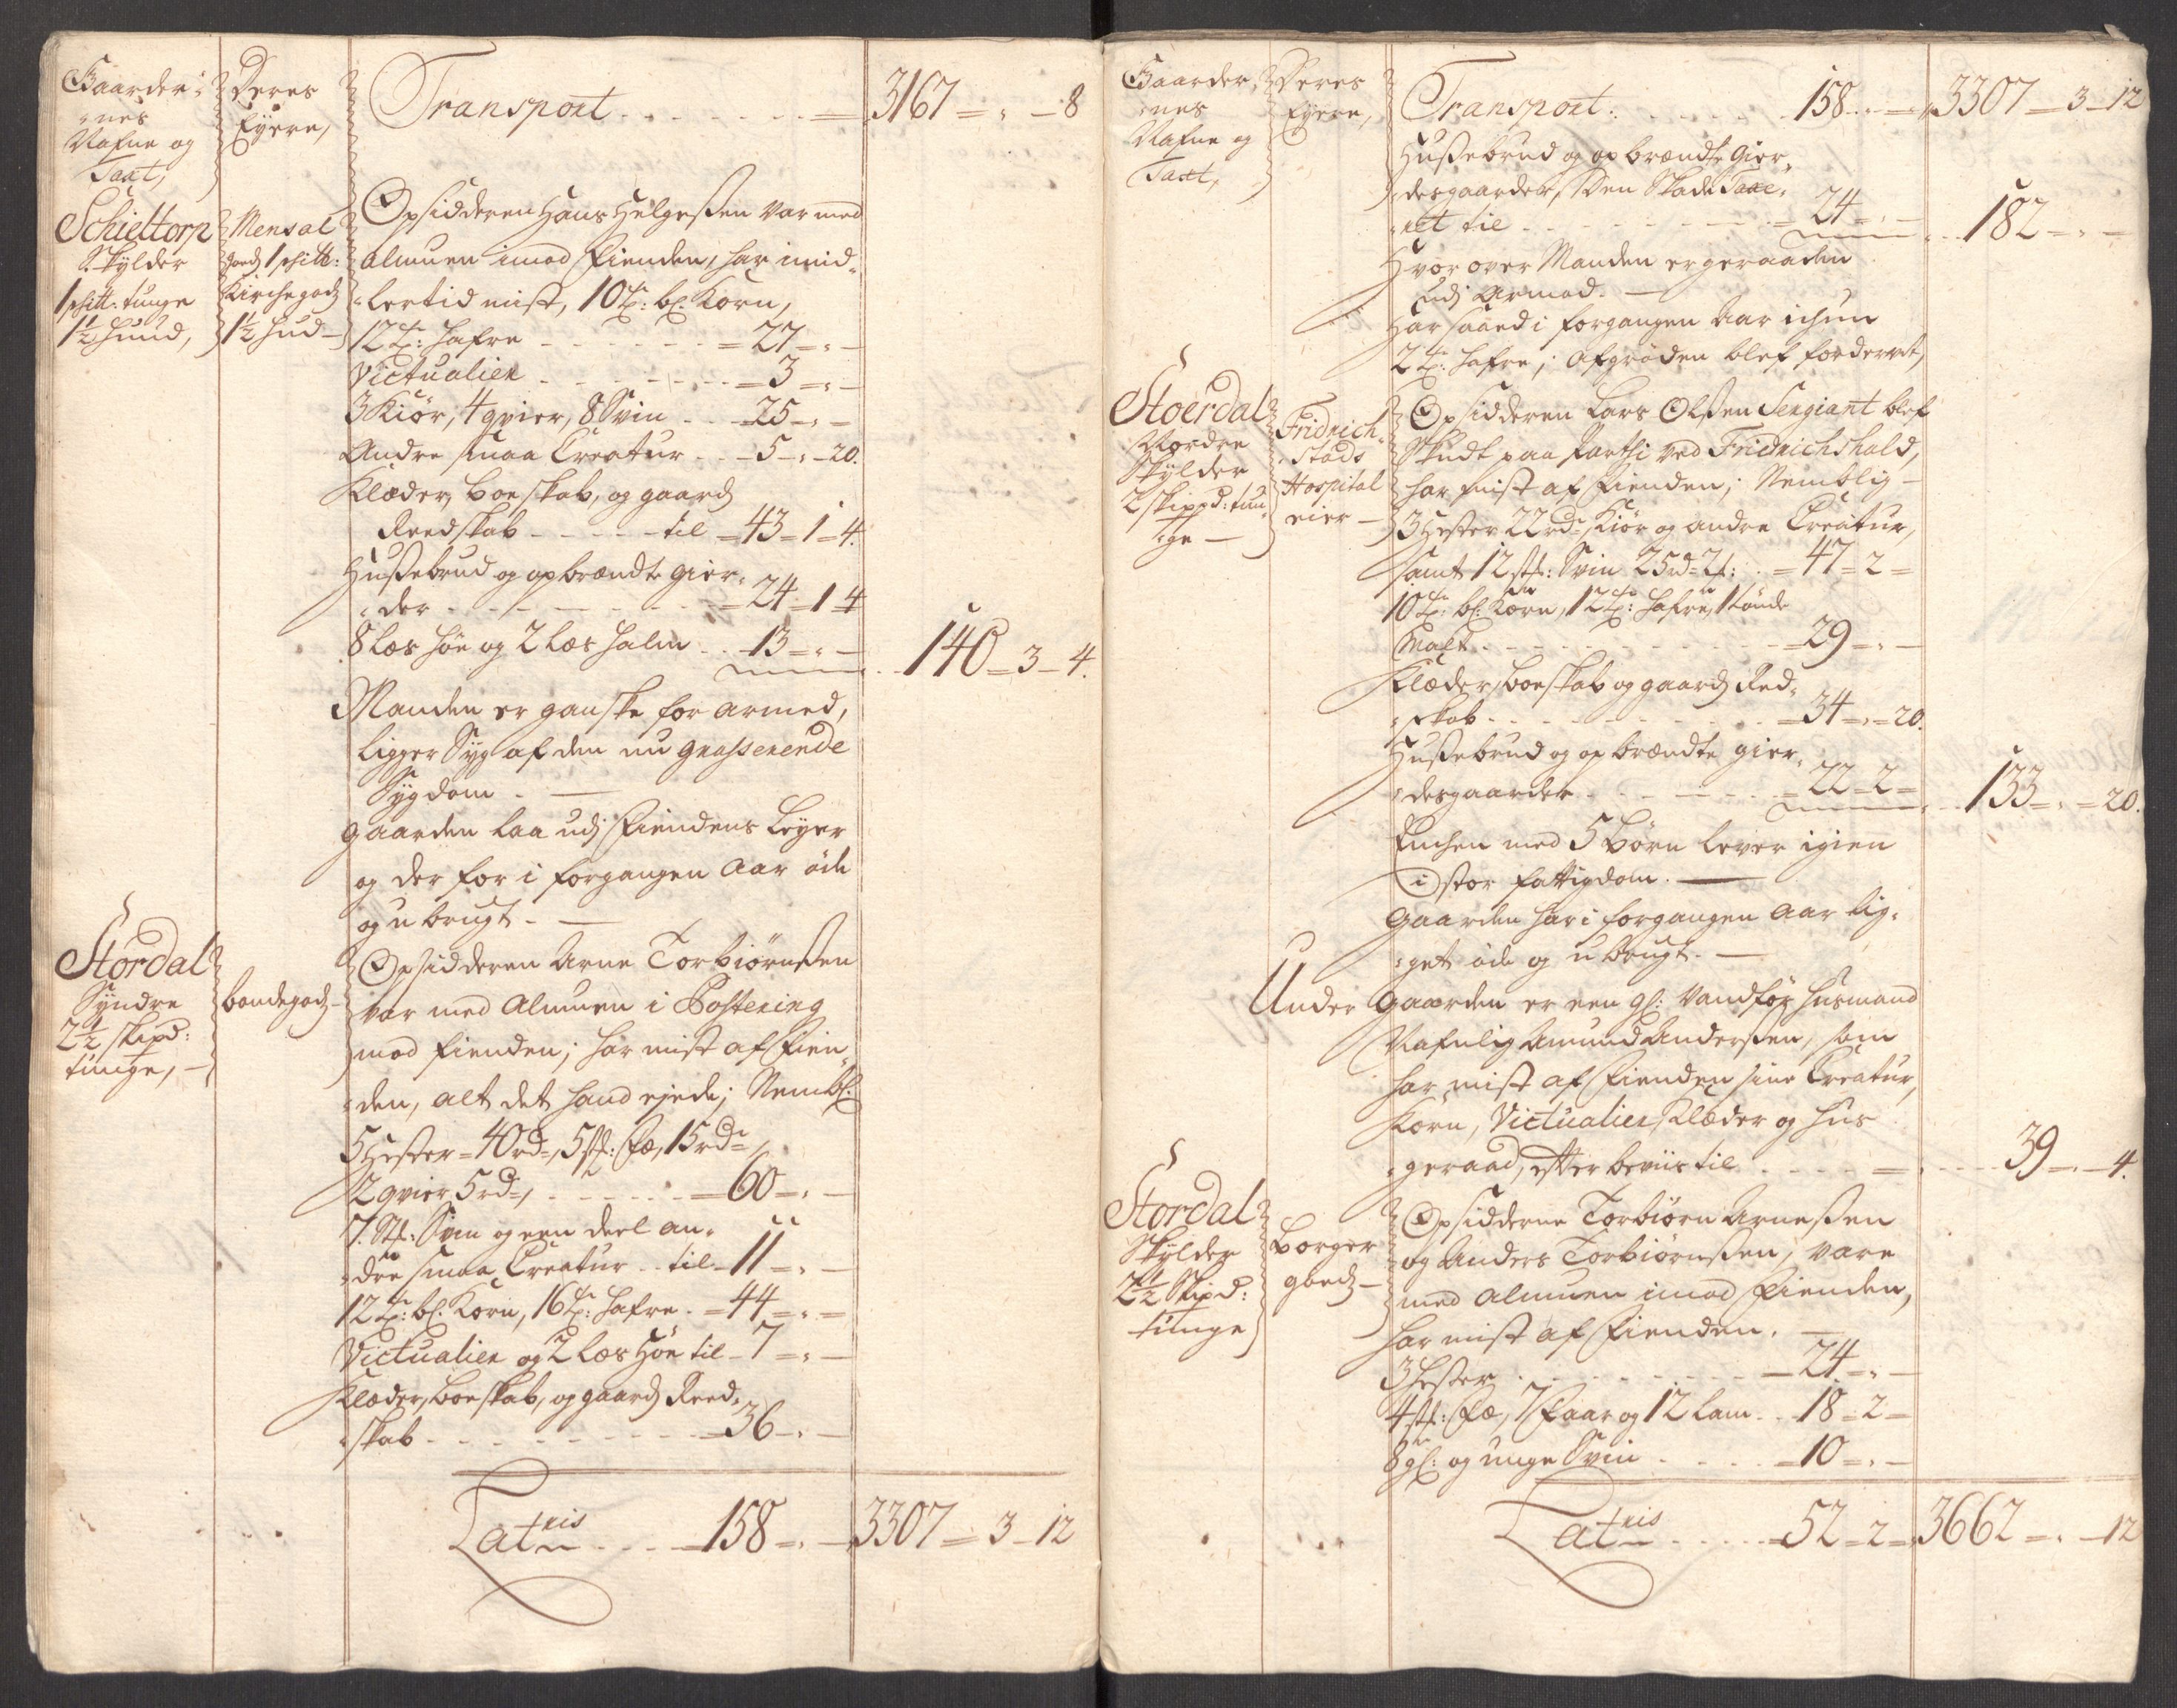 Gaarder-
nes
Nafne og
Taxt,
Deres
Eÿere,
Transport . . . . . . . = 3167 = „ - 8
Schieltorp
Skÿlder
1 schltt: tunge
1½ huud,
Mensal
gods 1 schltt:
Kirchegods
1½ hud -
Opsidderen Hans Helgeßen var med
almuen imod fienden, har imid-
lertid mist, 10 tr: bl: Korn,
12 tr: hafre - - - - = 27 = „ -
Victualier - - - - = 3 = „ -
3 Kiör, 4 qvier, 8 Svin - - 25 - „ -
Andre smaa Creatur - - 5 - „ - 20.
Klæder, Boeskab, og gaards
Reedskab - - - - til = 43 = 1 = 4.
Hußebrud og opbrændte gier-
der - - - - = 24 = 1 = 4
8 Læs höe og 2 Læs halm - - 13 = „ -
140 = 3 - 4.
Manden er ganske for armed,
ligger Syg af den nu grasserende
Sygdom. -
Gaarden laa udj Fiendens Leÿer
og der for i forgangen Aar öde
og u brugt. -
Stordal
Syndre
2½ skipd:
tunge, -
bondegods -
Opsidderen Arne Torbiörnßen
var med Almuen i Postering
mod fienden; har mist af Fien-
den, alt det hand ejede; Nembl:
5 Hester = 40 rd=, 5 st: Fæ, 15 rd=,
2 qvier, 5 rd=, - - - - = 60 = „ -
7. St: Svin og een deel an-
dre smaa Creatur - - til - 11 = „ -
12 tr: bl: Korn, 16 tr: hafre - = 44 = „ =
Victualier og 2 Læs Höe til - 7 = „ -
Klæder, Boeskab, og gaards Reed-
skab - - - - - - 36 - „ -
Lateris . . . = 158 = „ - 3307 = 3 - 12
Gaarder-
nes
Nafne og
Taxt,
Deres
Eÿere,
Transport . . . . . 158 - „ = 3307 = 3 - 12
Hußebrud og opbrændte Gier-
desgaarder, Den Skade Taxe-
ret til - - - - = 24 = „ -
182 = „ -
Hvor over Manden er geraaden
udj Armod. -
Har saaed i forgangen Aar ichun
2 tr: hafre; Afgröden blef fordervet,
Stoerdal
Nordre
Skÿlder
2 skippd: tun-
ge -
Fridrich-
Stads
Hospital
eier -
Opsidderen Lars Olßen Sergiant blef
Skudt paa Parthi ved Friedrichshald,
har mist af Fienden; Nemblig -
3 Hester 22 rd= Kiör og andre Creatur,
samt 12 st: Svin 25 rd= 2 : . = 47 = 2 =
10 tr: bl: Korn, 12 tr: hafre, 1 tönde
Malt - - - - - = 29 - „ -
Klæder, Boeskab og gaards Red-
skab - - - - - = 34 = „ = 20.
Hußebrud og opbrændte gier-
desgaarder - - - - = 22 = 2 =
133 = „ = 20.
Enchen med 5 Börn lever igien
i stor fattigdom. -
Gaarden har i forgangen Aar lig-
get öde og u brugt. -
Under Gaarden er een gl: Vandför husmand
Nafnlig Amund Anderßen, som
har mist af Fienden sine Creatur,
Korn, Victualier, Klæder og hus
geraad, efter beviis til . . . . = 39 = „ - 4.
Stordal
Skÿlder
2½ Skipd:
tunge
Borger
gods -
Opsidderne Torbiörn Arneßen
og Anders Torbiörnßen, vare
med Almuen imod Fienden,
har mist af Fienden. -
3 Hester - - - - = 24 = „ -
4 st: Fæ, 7 Faar og 12 Lam - - 18 = 2 =
8 gl: og unge Svin . . . . = 10 = „ -
Lateris . . . . = 52 = 2 = 3662 = „ - 12